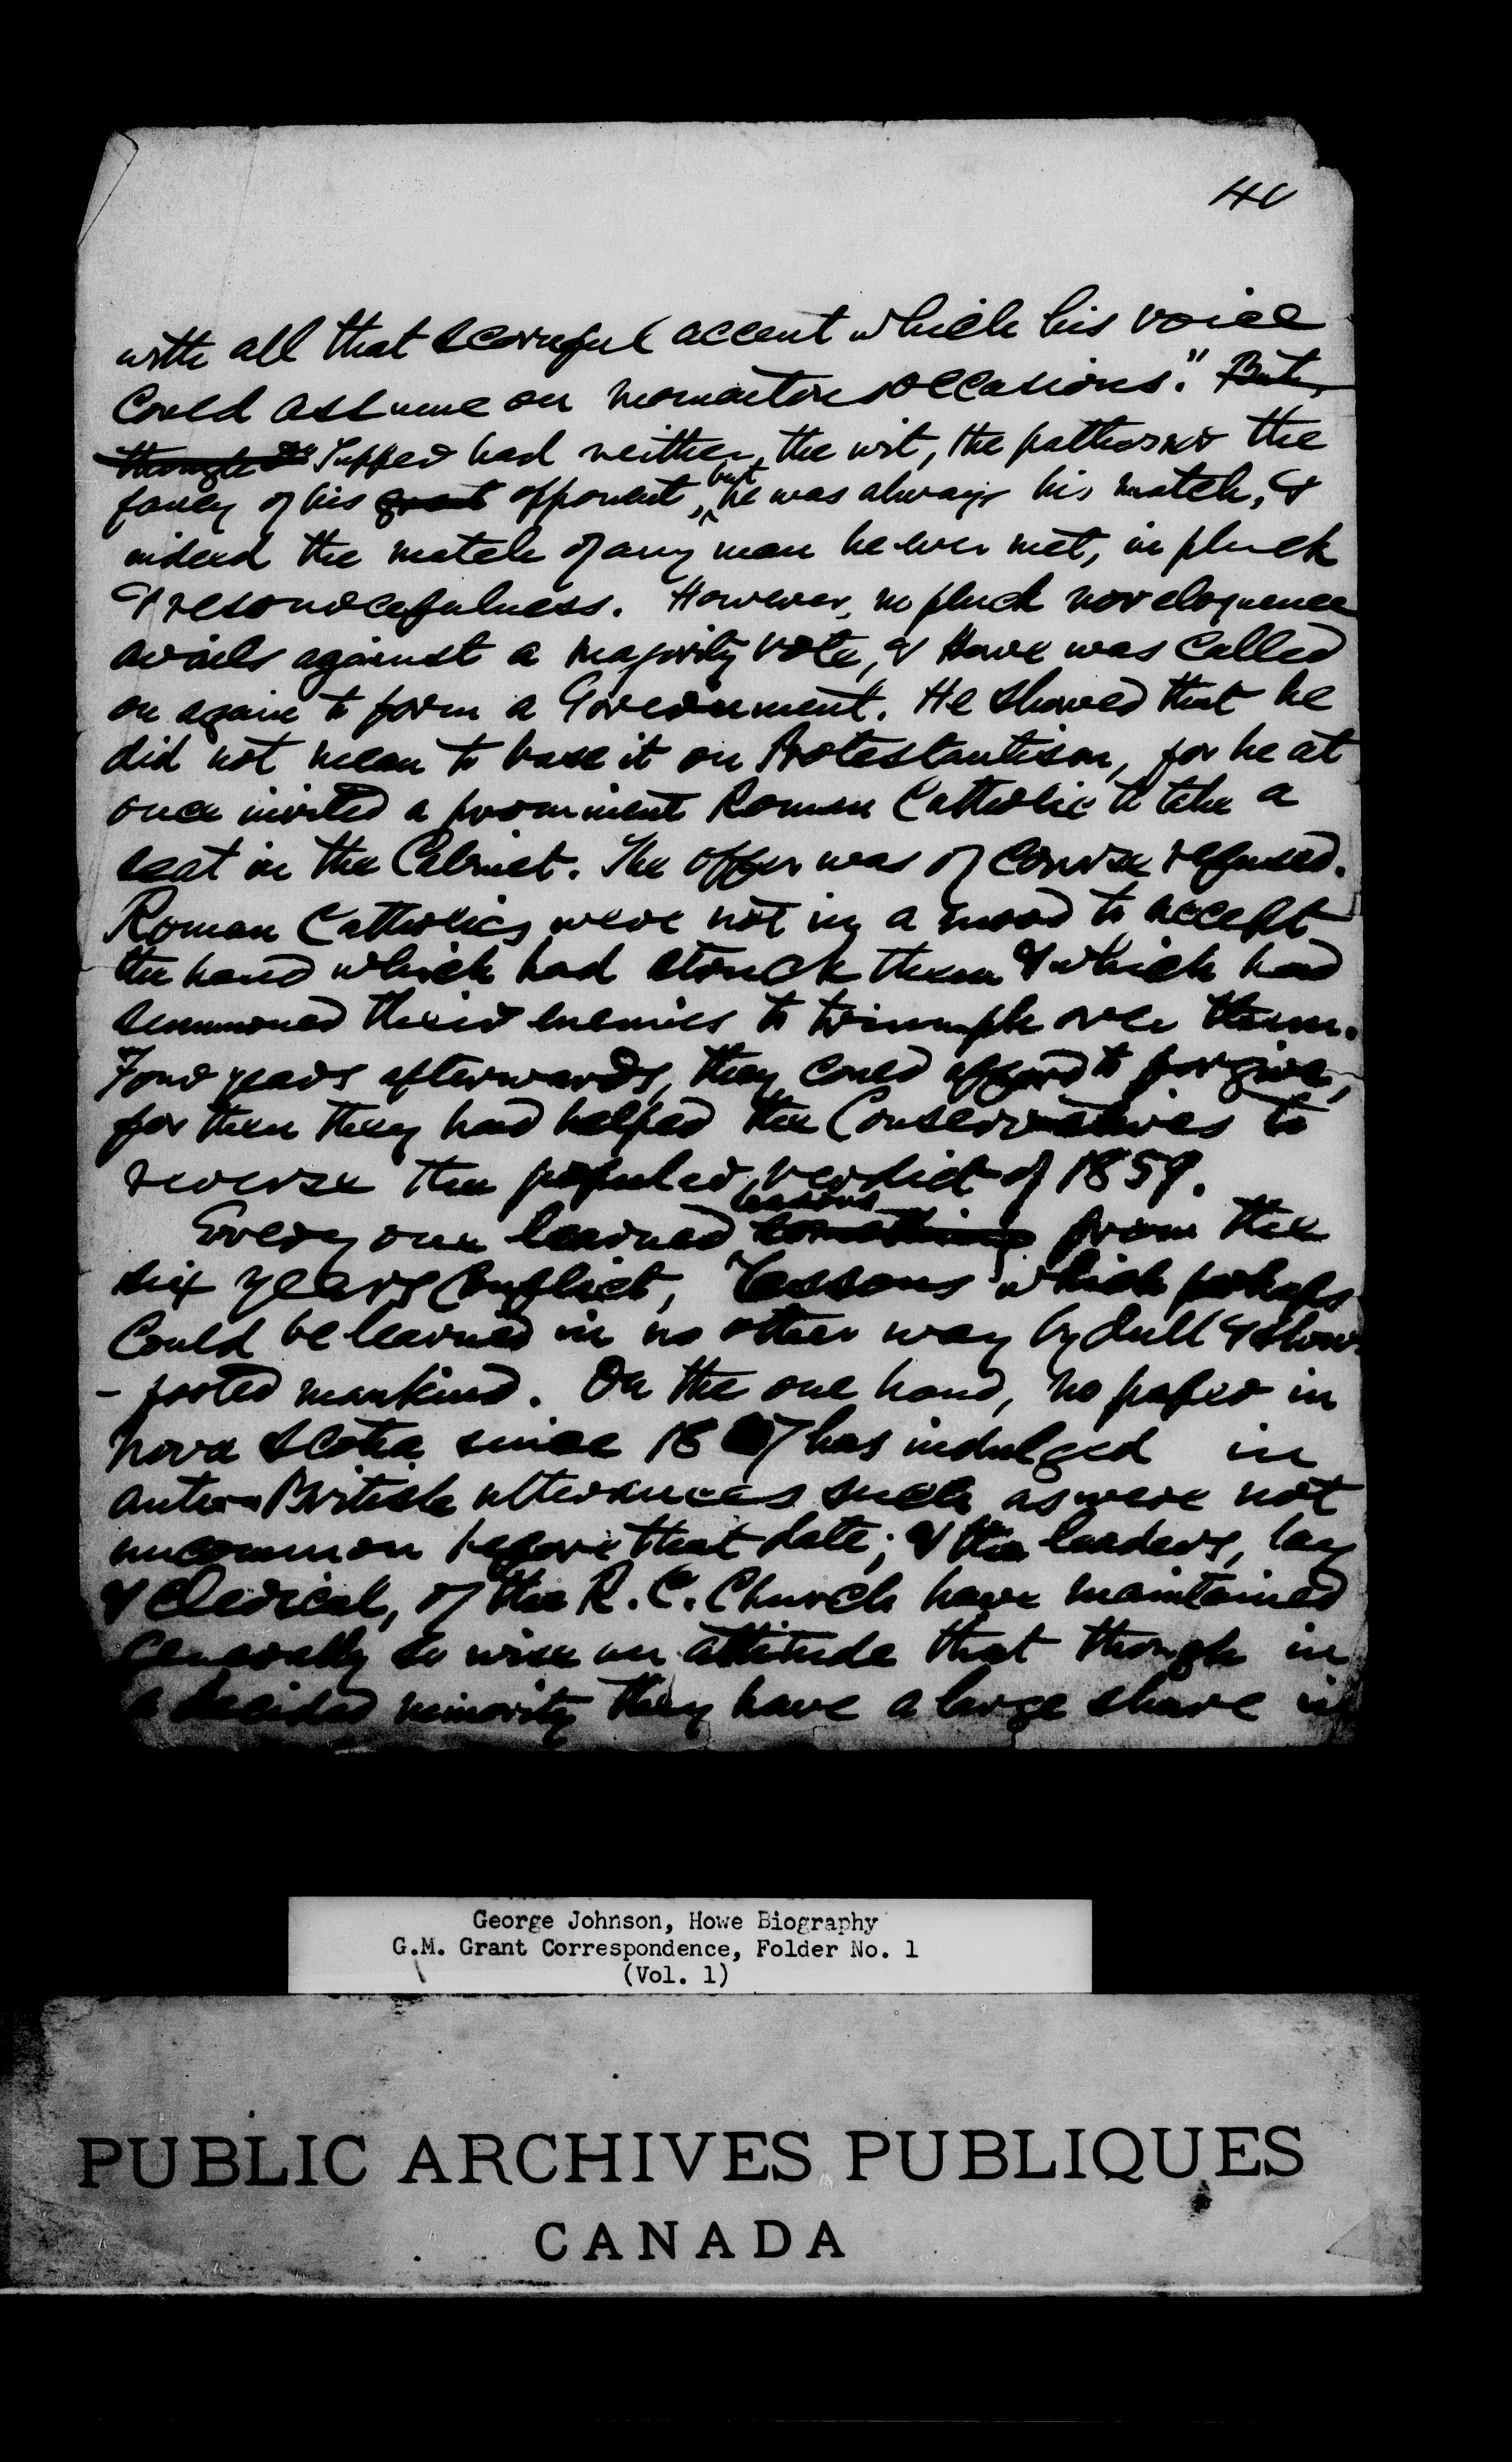 40
with all that scornful accent which his voice
could assume on momentous occasions." But,
though Tupper had neither the wit, the pathos nor the
fancy of his great opponent, but he was always his match, &
indeed the match of any man he ever met, in pluck
& resourcefulness. However, no pluck nor eloquence
avails against a majority vote, & Howe was called
on again to form a Government. He showed that he
did not mean to base it on Protestantism, for he at
once invited a prominent Roman Catholic to take a
seat in the Cabinet. The offer was of course refused.
Roman Catholics were not in a mood to accept
the hand which had struck them & which had
summoned their enemies to triumph over them.
Four years afterwards, they could afford to forgive,
for then they had helped the Conservatives to
reverse the popular verdict of 1859.
Every one learned lessons something from the
six years conflict, lessons which perhaps
could be learned in no other way by dull & slow
- footed mankind. On the one hand, no paper in
Nova Scotia since 1857 has indulged in
anti-British utterances such as were not
uncommon before that date; & the leaders, lay
& clerical, of the R. C. Church have maintained
generally so wise an attitude that though in
a decided minority they have a large share in
George Johnson, Howe Biography
G.M. Grant Correspondence, Folder No. 1
(Vol. 1)
PUBLIC ARCHIVES PUBLIQUES
CANADA